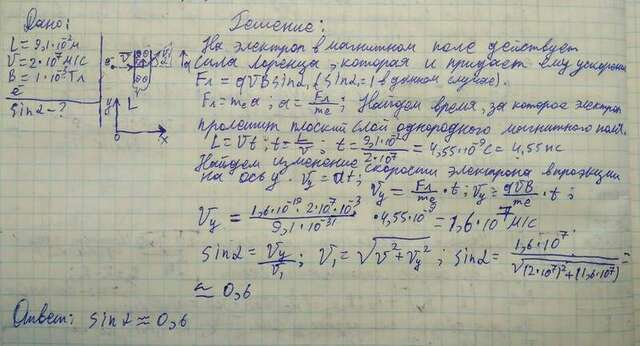 Дано:
L = 9,1·10⁻² м
V = 2·10⁷ м/с
B = 1·10⁻³ Тл
e⁻
sin α - ?
Решение:
На электрон в магнитном поле действует
сила лоренца, которая и придает ему ускорение
Fл = qVB sin α, (sin α = 1 в данном случае).
Fл = mₑa; a = Fл/mₑ; Найдем время, за которое электрон
пролетит плоский слой однородного магнитного поля.
L = Vt; t = L/V; t = 9,1·10⁻²/2·10⁷ = 4,55·10⁻⁹ с = 4,55 нс
Найдем изменение скорости электрона в проэкции
на ось y. Vy = at; Vy = Fл/mₑ · t; Vy = qVB/mₑ · t;
Vy = 1,6·10⁻¹⁹·2·10⁷·10⁻³/9,1·10⁻³¹ · 4,55·10⁻⁹ = 1,6·10⁷ м/с
sin α = Vy/V₁; V₁ = √(V² + Vy²); sin α = 1,6·10⁷/√((2·10⁷)² + (1,6·10⁷)²) =
≈ 0,6
Ответ: sin α ≈ 0,6
y
L
0
x
V